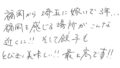 福岡から埼玉に嫁いで3年…
福岡を感じる場所がこんな
近くに!! そして餃子も
とびきり美味しい!! 最上高です!!